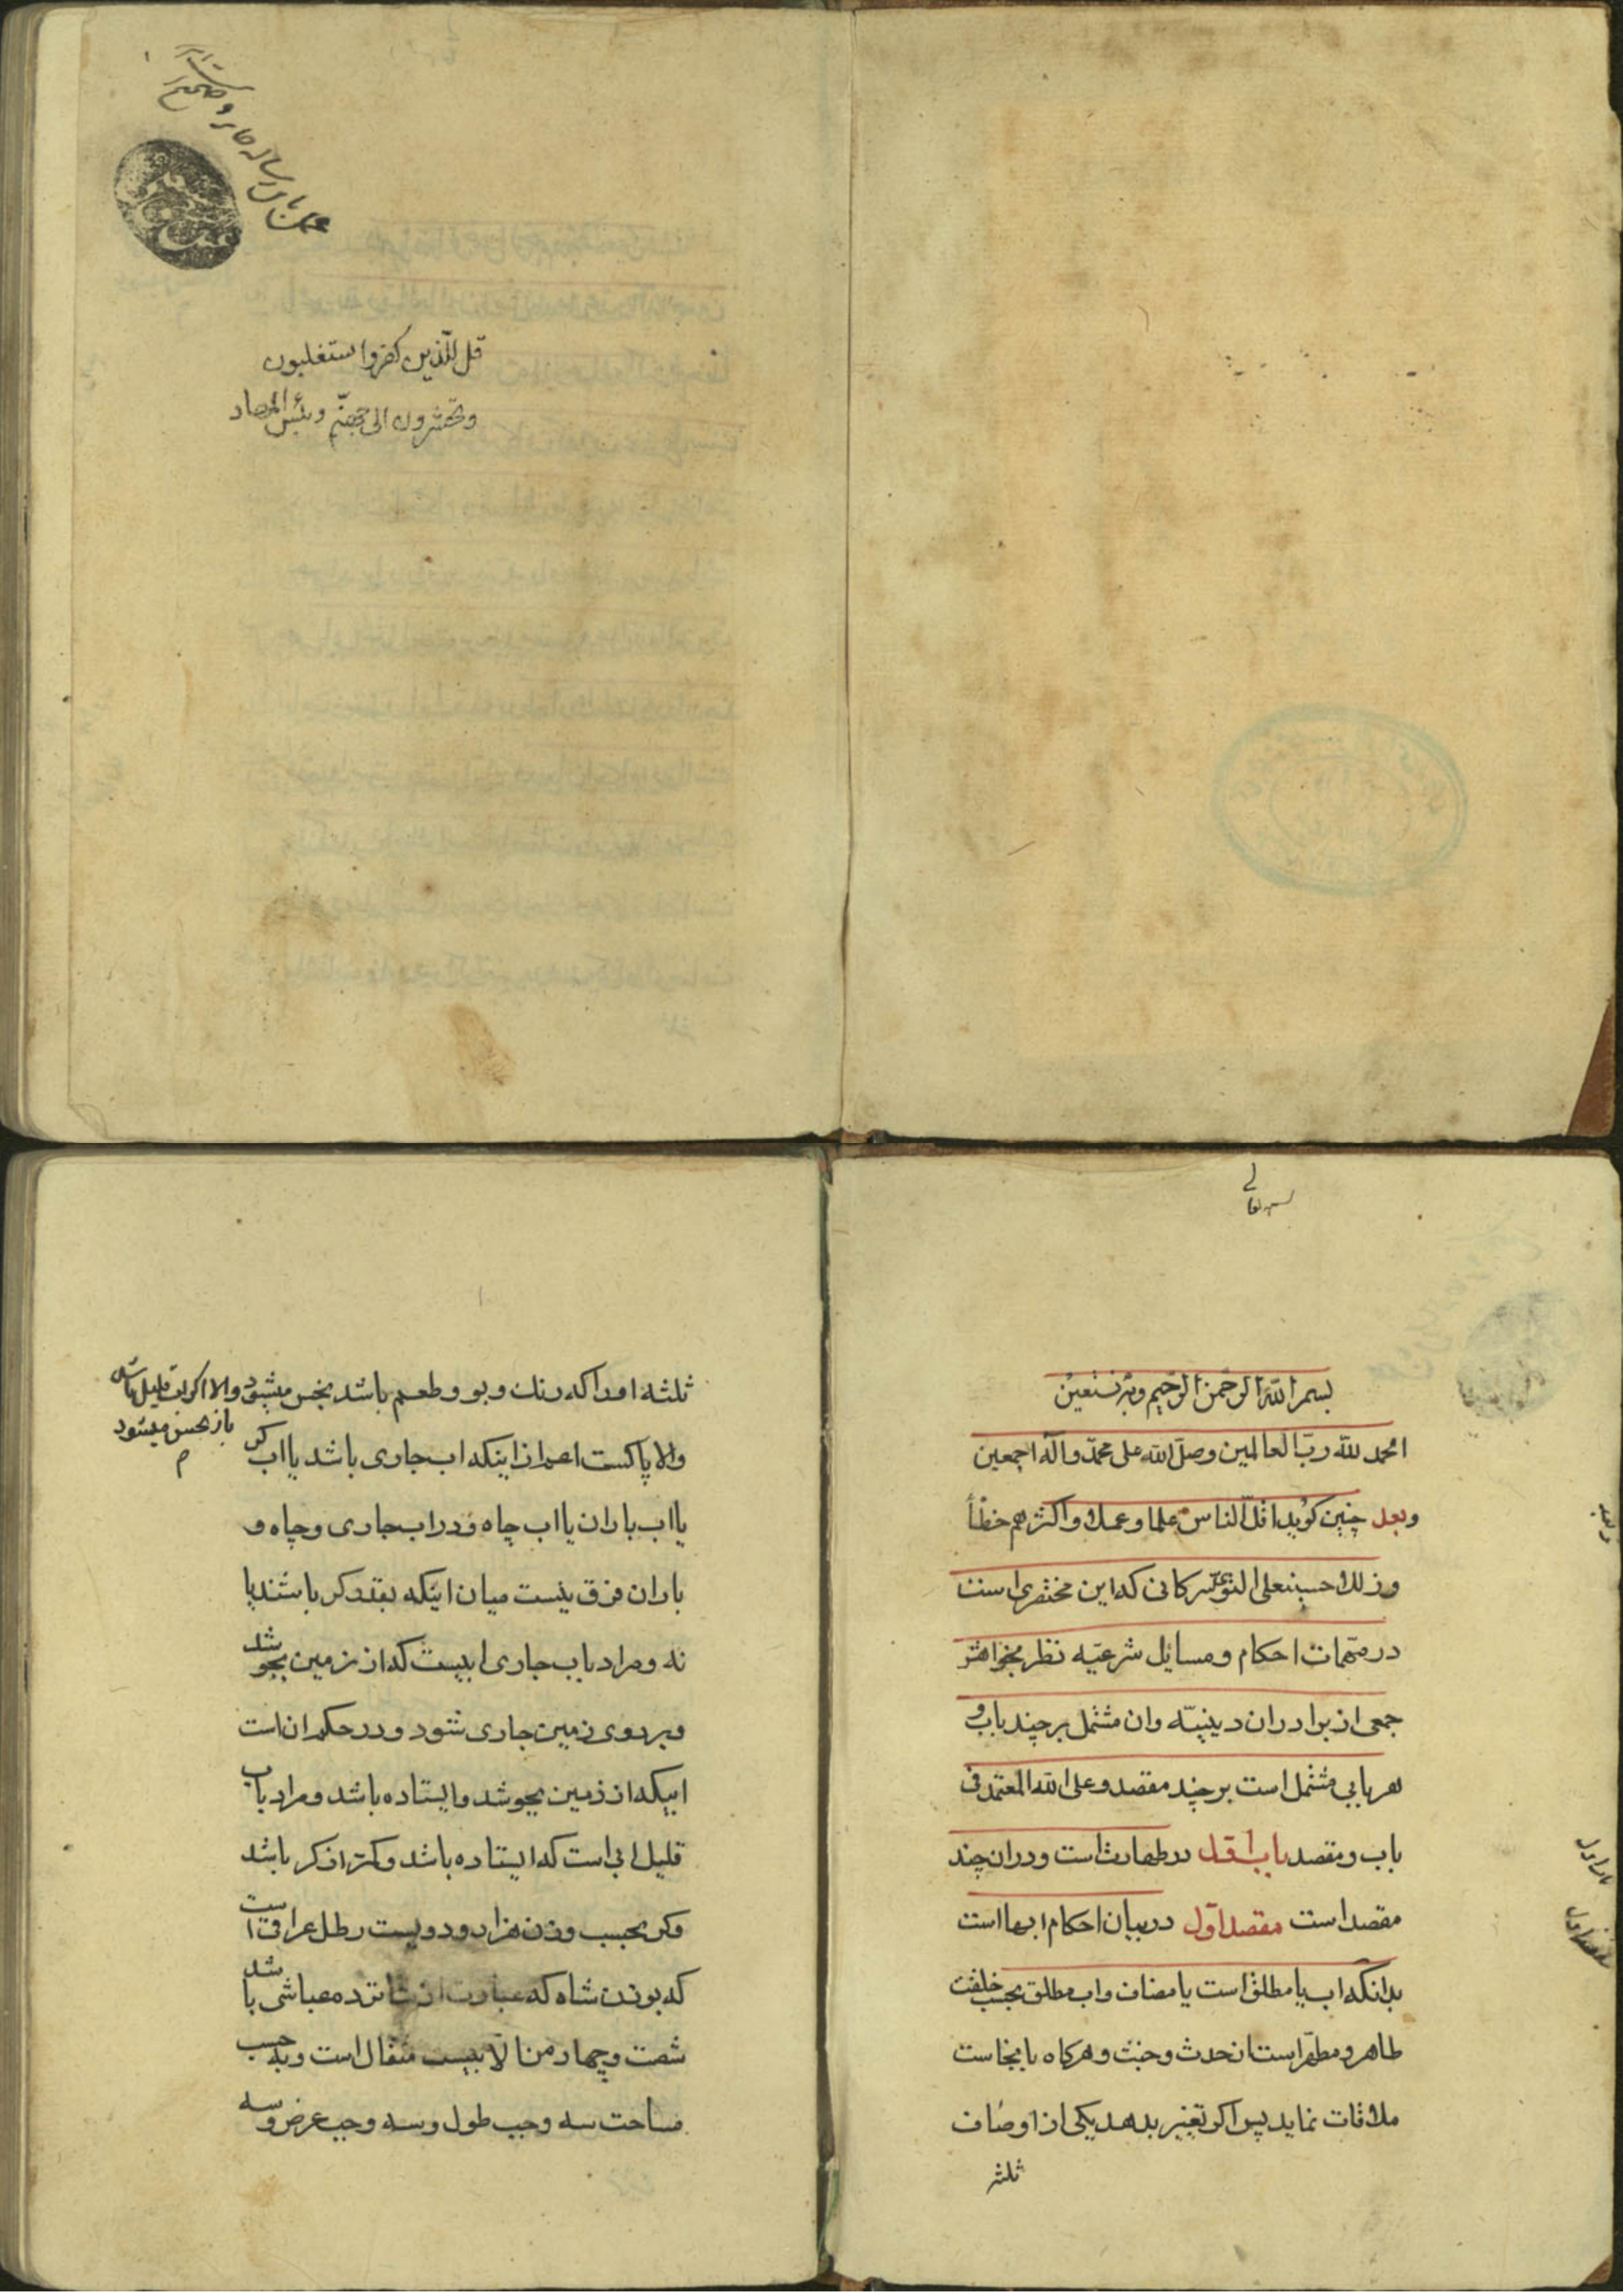 عمل باین رساله جایز و صحیح است
قل للّذین کفروا ستغلبون
وتحشرون الی جهنّم وبئس المهاد
بسم الله الرّحمن الرّحیم وبه نستعین
الحمد لله ربّ العالمین وصلّی الله علی محمّد وآله اجمعین
وبعد چنین کوید اقلّ الناس علما وعملا واکثرهم خطأ
وزللا حسینعلی التویسرکانی که این مختصری است
در مهمّات احکام ومسایل شرعیّه نظر بخواهش
جمعی از برادران دینیّه وان مشتمل بر چند باب و
هر بابی مشتمل است بر چند مقصد وعلی الله المعتمد فی
باب ومقصد باب اوّل در طهارت است ودران چند
مقصد است مقصد اوّل در بیان احکام ابها است
بدانکه اب یا مطلق است یا مضاف واب مطلق بحسب خلقت
طاهر ومطهّر است از حدث وخبث وهرکاه با نجاست
ملاقات نماید پس اکر تغییر بدهد یکی از اوصاف
ثلثه
ثلثه او را که رنک وبو وطعم باشد نجس میشود والا اکر اب قلیل باشد
باز نجس میشود
والا پاکست اعم از اینکه اب جاری باشد یا اب کر
یا اب باران یا اب چاه ودر اب جاری وچاه و
باران فرق نیست میان اینکه بقدر کر باشند یا
نه ومراد باب جاری ابیست که از زمین بجوشد
وبر روی زمین جاری شود ودر حکم ان است
ابیکه از زمین بجوشد وایستاده باشد ومراد باب
قلیل ابی است که ایستاده باشد وکمتر از کر باشد
وکر بحسب وزن هزار ودویست رطل عراقی است
که بوزن شاه که عبارت از شانزده عباسی باشد
شصت وچهار من الّا بیست مثقال است وبحسب
مساحت سه وجب طول وسه وجب عرض وسه
وبعد
باب اول
مقصد اول